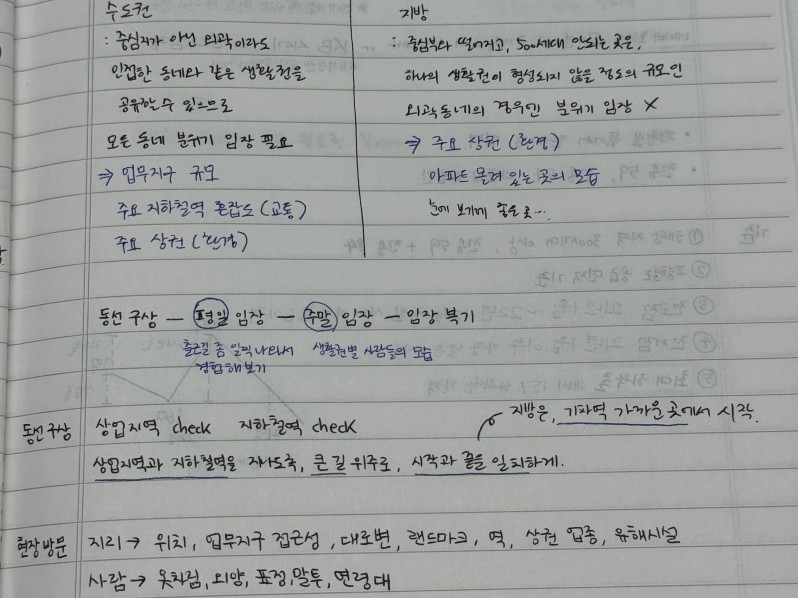 수도권
: 중심지가 아닌 외곽이라도
인접한 동네와 같은 생활권을
공유할 수 있으므로
모든 동네 분위기 임장 필요
⇒ 업무지구 규모
주요 지하철역 혼잡도 (교통)
주요 상권 (환경)
지방
: 중심부와 떨어지고, 500세대 안되는 곳은,
하나의 생활권이 형성되지 않을 정도의 규모인
외곽 동네의 경우엔 분위기 임장 X
⇒ 주요 상권 (환경)
아파트 몰려 있는 곳의 모습
눈에 보기에 좋은 곳...
동선 구상 — 평일 임장 — 주말 임장 — 임장 복기
출근길 좀 일찍 나와서
경험해보기
생활권별 사람들의 모습
동선구상 상업지역 check 지하철역 check
지방은, 기차역 가까운 곳에서 시작.
상업지역과 지하철역을 지나도록, 큰 길 위주로, 시작과 끝을 일치하게.
현장방문 지리 → 위치, 업무지구 접근성, 대로변, 랜드마크, 역, 상권 업종, 유해시설
사람 → 옷차림, 외양, 표정, 말투, 연령대